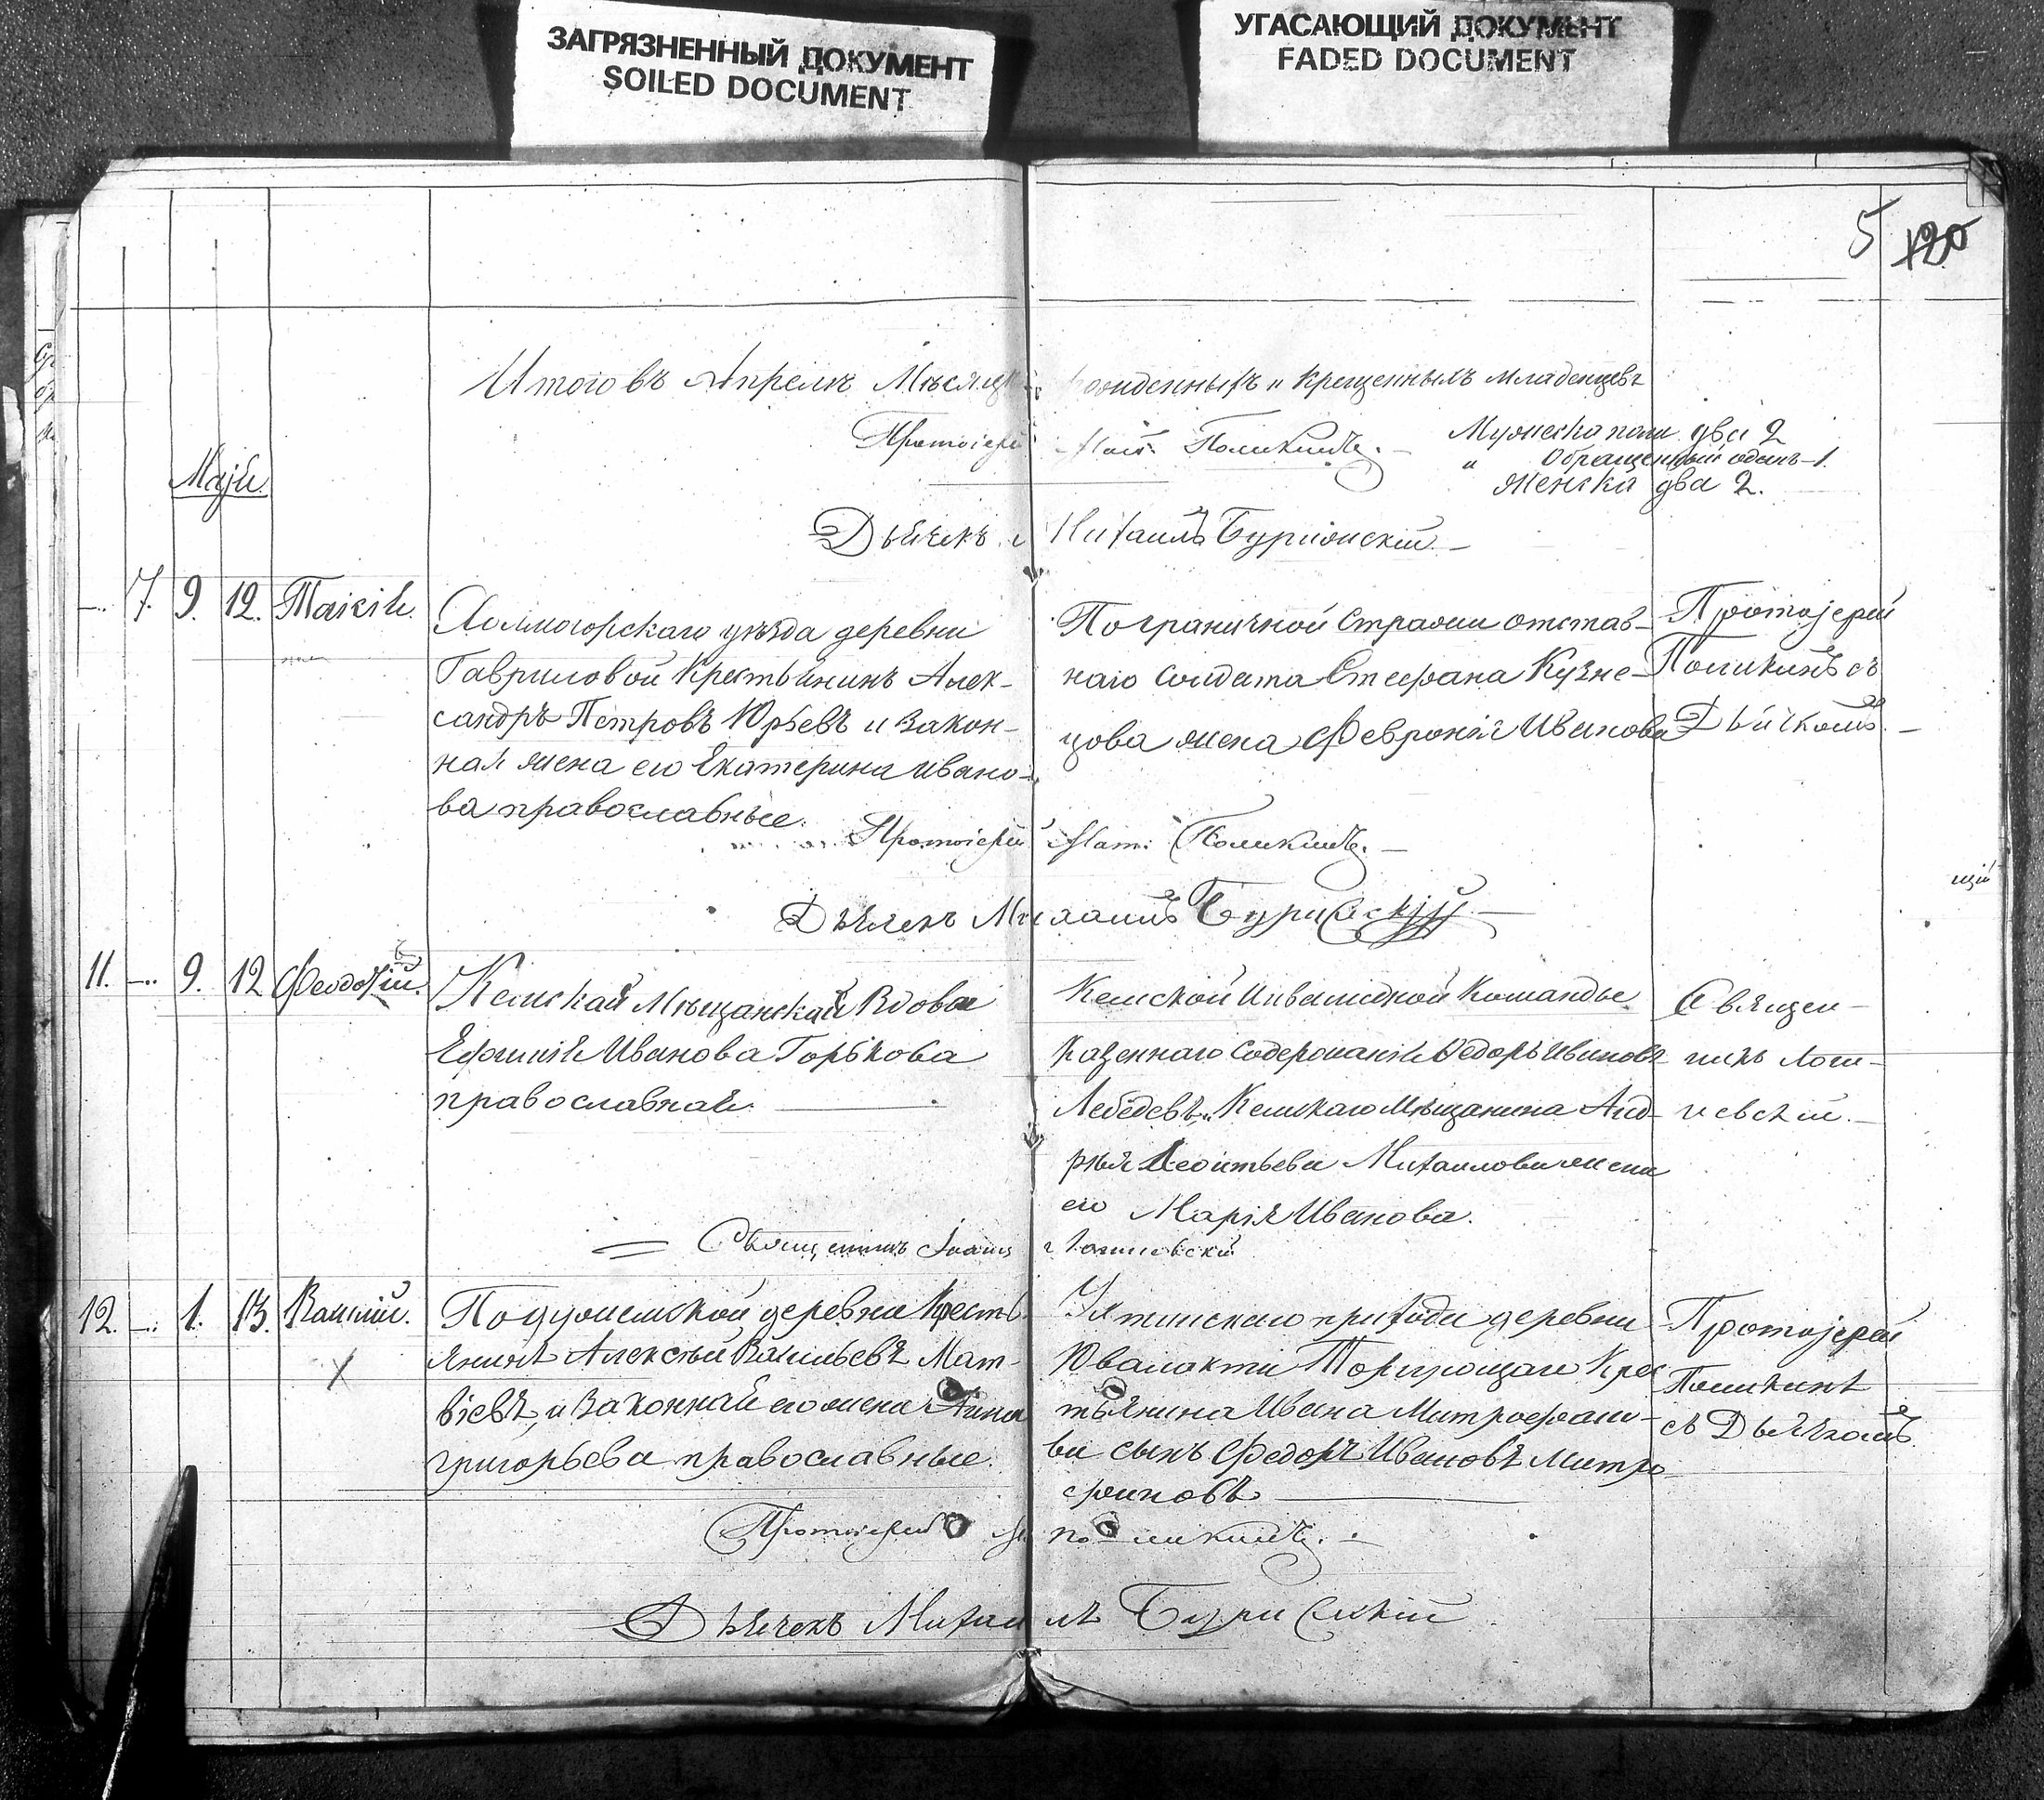 ЗАГРЯЗНЕННЫЙ ДОКУМЕНТ
SOILED DOCUMENT
УГАСАЮЩИЙ ДОКУМЕНТ
FADED DOCUMENT
5 120
Итого въ Апрелѣ Мѣсяцѣ рожденныхъ и крещенныхъ младенцевъ
Протоіерей Поликинъ.
Мужеска пола два 2
" Обращенный одинъ - 1.
Женска два 2.
Маія.
Дьячекъ Михаилъ
7. 9. 12. Таисія.
Холмогорскаго уѣзда деревни
Гавриловой Крестьянинъ Алек-
сандръ Петровъ Юрьевъ и Закон-
ная жена его Екатерина Ивано-
ва православные.
Пограничной Стражи отстав-
наго Солдата Стефана Кузне-
цова жена Февронія Иванова
Протоіерей
Поликинъ съ
Дьячкомъ
Протоіерей Поликинъ.
Дьячекъ Михаилъ
11. 9. 12 Феодосій.
Кемская Мѣщанская Вдова
Ефимія Иванова Горькова
православная.
Кемской Инвалидной Команды
Казеннаго Содержанія Федоръ Ивановъ
Лебедевъ, Кемскаго Мѣщанина Анд-
рея Леонтьева Михайлова жена
его Марія Иванова.
Священ-
никъ Логи-
невскій.
Священникъ Іоаннъ Логиневскій
12. 1. 13. Вассій.
Подужемской деревни Кресть-
янинъ Алексѣй Васильевъ Мат-
вѣевъ, и Законная его жена Анна
Григорьева православные.
Ухтинскаго прихода деревни
Ювалакти Торгующаго Крес
тьянина Ивана Митрофано-
ва сынъ Федоръ Ивановъ Митро
фановъ
Протоіерей
Поликинъ
съ Дьячкомъ.
Протоіерей Поликинъ.
Дьячекъ Михаилъ